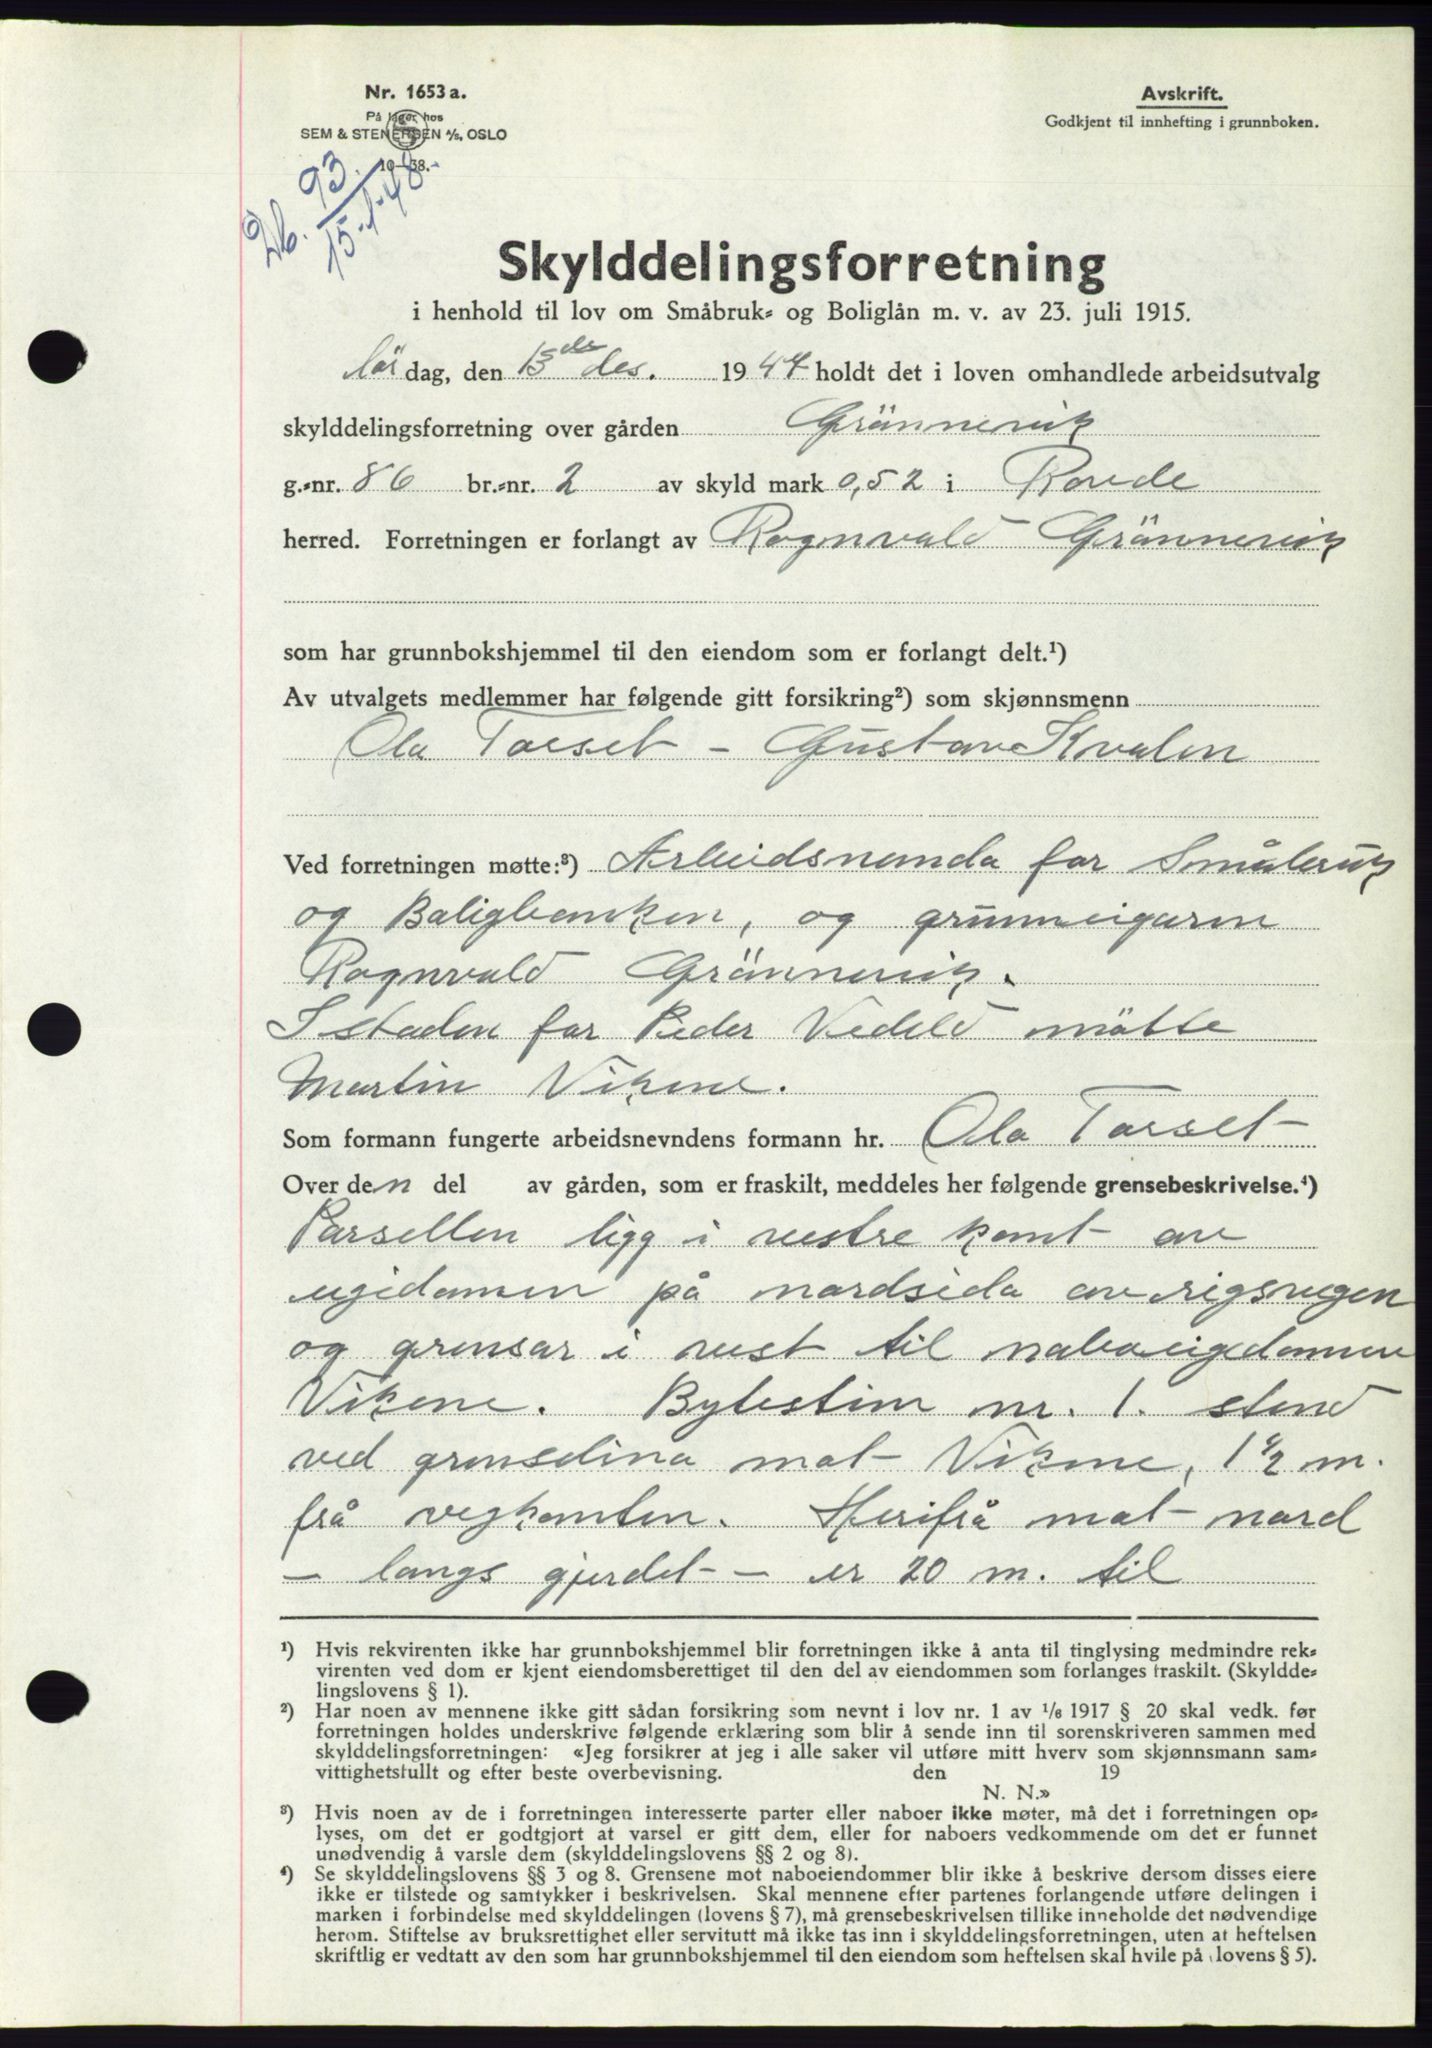 Nr. 1653 a.
På lager hos
SEM & STENERSEN A/S, OSLO
10—38.
Avskrift.
Godkjent til innhefting i grunnboken.
Db. 93/15-1-48.-
Skylddelingsforretning
i henhold til lov om Småbruk- og Boliglån m. v. av 23. juli 1915.
lör dag, den 13de des. 1947 holdt det i loven omhandlede arbeidsutvalg
skylddelingsforretning over gården Grännevik
g.-nr. 86 br.-nr. 2 av skyld mark 0,52 i Rovde
herred. Forretningen er forlangt av Rognvald Grännevik
som har grunnbokshjemmel til den eiendom som er forlangt delt.¹)
Av utvalgets medlemmer har følgende gitt forsikring²) som skjønnsmenn
Ola Torset - Gustav Kvalen
Ved forretningen møtte:³) Arbeidsnemda for Småbruk
og Boligbanken, og grunneigaren
Rognvald Grännevik.
I staden for Peder Vedeld mötte
Martin Vikene.
Som formann fungerte arbeidsnevndens formann hr. Ola Torset
Over den del av gården, som er fraskilt, meddeles her følgende grensebeskrivelse.⁴)
Parsellen ligg i vestre kant av
eigedomen på nordsida av rigsvegen
og grensar i vest til naboeigedomen
Vikene. Bytestein nr. 1. stend
ved grenselina mot Vikene, 1 1/2 m.
frå vegkanten. Herifrå mot nord
— langs gjerdet — er 20 m. til
¹) Hvis rekvirenten ikke har grunnbokshjemmel blir forretningen ikke å anta til tinglysing medmindre rek-
virenten ved dom er kjent eiendomsberettiget til den del av eiendommen som forlanges fraskilt. (Skyldde-
lingslovens § 1).
²) Har noen av mennene ikke gitt sådan forsikring som nevnt i lov nr. 1 av 1/6 1917 § 20 skal vedk. før
forretningen holdes underskrive følgende erklæring som blir å sende inn til sorenskriveren sammen med
skylddelingsforretningen: «Jeg forsikrer at jeg i alle saker vil utføre mitt hverv som skjønnsmann sam-
vittighetsfullt og efter beste overbevisning. den 19
N. N.»
³) Hvis noen av de i forretningen interesserte parter eller naboer ikke møter, må det i forretningen op-
lyses, om det er godtgjort at varsel er gitt dem, eller for naboers vedkommende om det er funnet
unødvendig å varsle dem (skylddelingslovens §§ 2 og 8).
⁴) Se skylddelingslovens §§ 3 og 8. Grensene mot naboeiendommer blir ikke å beskrive dersom disses eiere
ikke er tilstede og samtykker i beskrivelsen. Skal mennene efter partenes forlangende utføre delingen i
marken i forbindelse med skylddelingen (lovens § 7), må grensebeskrivelsen tillike inneholde det nødvendige
herom. Stiftelse av bruksrettighet eller servitutt må ikke tas inn i skylddelingsforretningen, uten at heftelsen
skriftlig er vedtatt av den som har grunnbokshjemmel til den eiendom som heftelsen skal hvile på (lovens § 5).